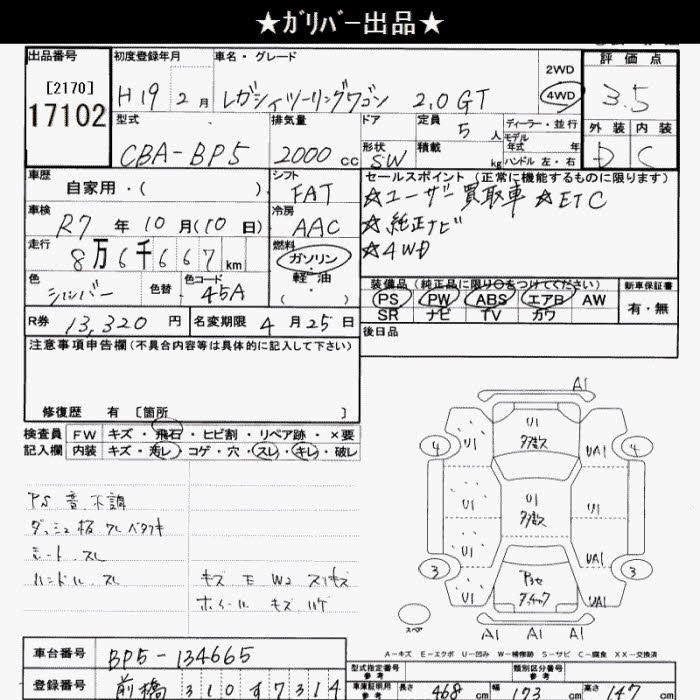 ★ガリバー出品★
出品番号 初度登録年月 車名・グレード 評価点
[2170] 17102 H19 2月 レガシィツーリングワゴン 2.0GT 2WD 4WD 3.5
型式 排気量 ドア 定員 ディーラー・並行 外装 内装
CBA-BP5 2000cc 形状 SW 5人 積載 kg モデル年式 年 ハンドル 左・右 D C
車歴 シフト セールスポイント (正常に機能するものに限ります)
自家用・( ) FAT ☆ユーザー買取車 ☆ETC
車検 冷房 ☆純正ナビ
R7年10月(10日) AAC ☆4WD
走行 燃料
8万6千667km ガソリン・軽油 ( )
色 色替 色コード 装備品 (純正品に限り○をつけてください) 新車保証書
シルバー 45A PS PW ABS エアB AW 有・無
SR ナビ TV カワ
R券 13,320円 名変期限 4月25日 後日品
注意事項申告欄 (不具合内容等は具体的に記入して下さい)
修復歴 有 [箇所 ]
検査員 FW キズ・飛石・ヒビ割・リペア跡・×要
記入欄 内装 キズ・汚レ・コゲ・穴・スレ・キレ・破レ
A1
U1 U1 多数 UA1
4 4
U1 U1 多数 U1
U1 UA1
3 3
U1 UA1
PS 音 不調
シート スレ
ハンドル スレ
ホイール キズ ハゲ
スペア
A1 A1 A1
A-キズ E-エクボ U-凹み W-補修跡 S-サビ C-腐食 XX-交換済
車台番号 BP5-134665
型式指定番号 参考 類別区分番号 参考
登録番号 前橋 310 す 7314
車庫証明用 参考 長さ 468cm 幅 173cm 高さ 147cm